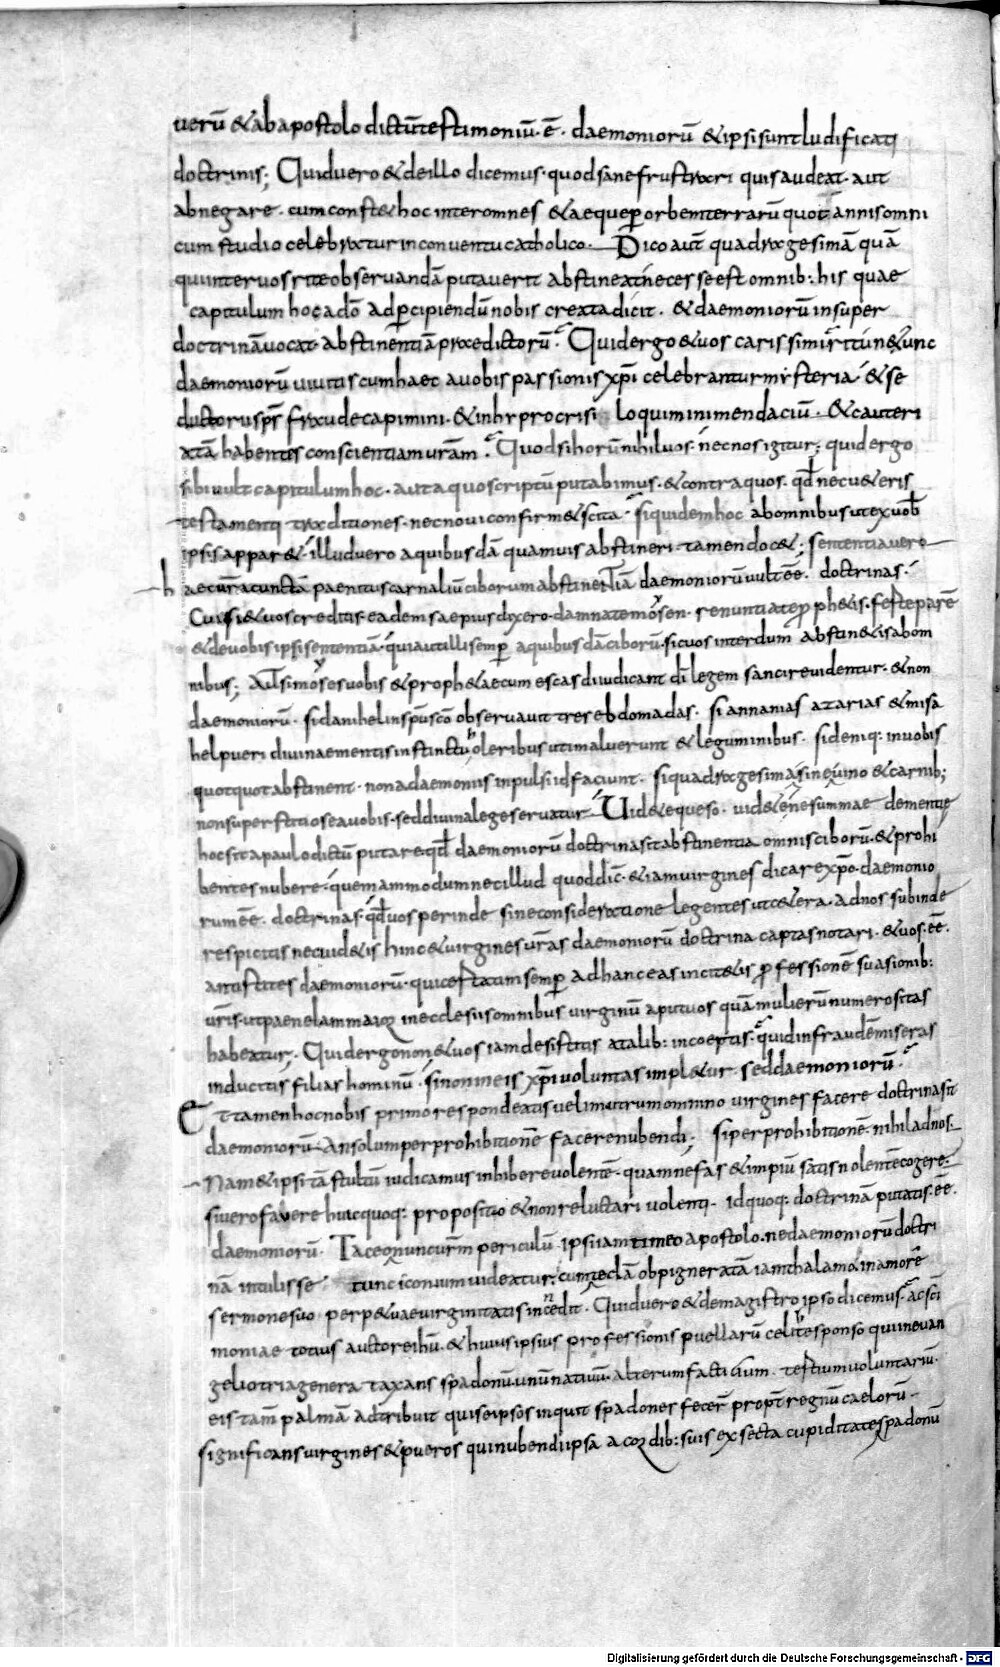 uerū & ab apostolo dictū testimoniū ē · daemoniorū & ipsi sunt ludificati
doctrinis; Quid uero & de illo dicemus · quod sane frustrari quis audeat · aut
abnegare · cum constet hoc inter omnes & aeque ꝑ orbem terrarū quot annis omni
cum studio celebratur in conuentu catholico · Dico aut̄ quadragesimā quā
qui inter uos rite obseruandā putauerit abstineat necesse est omnib: his quae
capitulum hoc a dō ad ꝑcipiendū nobis creata dicit · & daemoniorū insuper
doctrinā uocat abstinentiā praedictorū · Quid ergo & uos carissimi &unc
daemoniorū cum haec a uobis passionis xp̄i celebrantur mysteria · & se
ductoris sp̄s fraude capimini · & in hypocrisi loquimini mendaciū · & cauteri
atā habentes conscientiam uram̄ · Quod si horū nihil uos · nec nos igitur; quid ergo
sibi uult capitulum hoc · aut a quo scriptū putabimus · & contra quos · qđ nec ueteris
testamenti traditiones · nec noui confirmet scita · siquidem hoc ab omnibus ut ex uob̄
ipsis apparet · illud uero a quibusdā quamuis abstineri · tamen docet; sententia uero
haec ur̄a cunctā paenitus carnaliū ciborum abstinentiā daemoniorū uult eē · doctrinas ·
Cui si & uos creditis · eadem saepius dixero · damnate mosen · renuntiate prophetis · ferte parē
& de uobis ipsi sententiā · quia ut illi semꝑ a quibusdā ciborū · sic uos interdum abstinetis ab om
nibus; Aut si moses uobis & prophetae cum escas diiudicant dī legem sancire uidentur · & non
daemoniorū · si danihel in sp̄u scō obseruauit tres ebdomadas · si annanias azarias & misa
hel pueri diuinae mentis instinctu oleribus uti maluerunt & leguminibus · si deniq: in uobis
quotquot abstinent · non a daemoniis inpulsi id faciunt · si quadragesima sine uino & carnib;
non superstitiose a uobis · sed diuina lege seruatur · Uidete queso · uidete ne summae dementię
hoc sit a paulo dictū putare · qđ daemoniorū doctrina sit abstinentia omnis ciborū · & prohi
bentes nubere · quemammodum nec illud quod dic̄ · etiam uirgines dicare xp̄o · daemonio
rum eē · doctrinas · qđ uos perinde sine consideratione legentes ut cetera · ad nos subinde
respicitis nec uidetis hinc & uirgines ur̄as daemoniorū doctrina captas notari · & uos · eē ·
antistites daemoniorū · qui certatim semꝑ ad hanc eas incitetis ꝓfessionē suasionib:
ur̄is · ut paene iam maior in ecclesiis omnibus uirginū apud uos quā mulierū numerositas
habeatur; Quid ergo non & uos iam desistitis a talib: incoeptis · quid in fraudē miseras
inducitis filias hominū · si non in eis xp̄i uoluntas impletur · sed daemoniorū ·
Et tamen hoc nobis primo respondeatis uelim utrum omnino uirgines facere doctrina sit
daemoniorū · An solum per prohibitionē facere nubendi; si per prohibitionē · nihil ad nos ·
Nam & ipsi tā stultū iudicamus inhibere uolentē · quam nefas & impiū satis nolentē cogere ·
si uero fauere huic quoq: proposito & non reluctari uolenti · id quoq: doctrinā putatis · eē ·
daemoniorū · Taceo nunc urm̄ periculū ipsi iam timeo apostolo · ne daemoniorū doctri
nā intulisse tunc iconium uideatur; cum teclā obpigneratā iam thalamo in amorē
sermone suo perpetuae uirginitatis incendit · Quid uero & de magistro ipso dicemus · ac scī
moniae totius auctore ih̄u · & huius ipsius professionis puellarū celite sponso qui in euan
gelio tria genera taxans spadonū · unū natiuū · alterum facticium · tertium uoluntariū ·
eis tam̄ palmā adtribuit qui se ipsos inquit spadones fecer̄ propt̄ regnū caelorū ·
significans uirgines & pueros qui nubendi ipsa a cordib: suis exsecta cupiditate spadonū